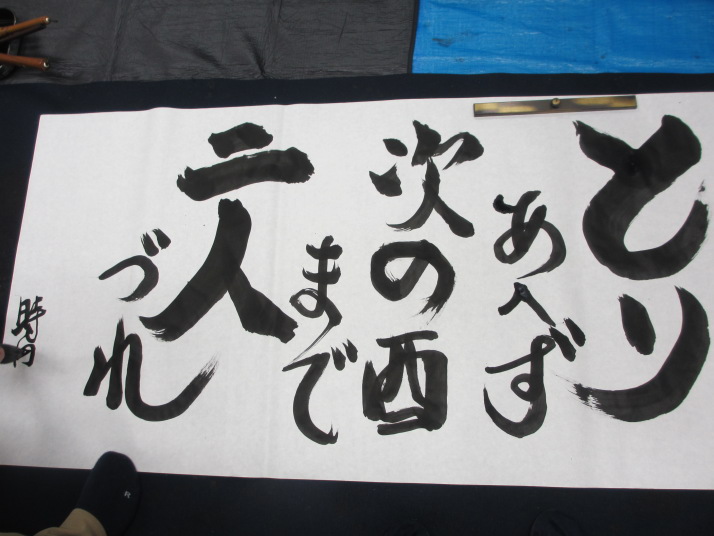 とり
あへず
次の酉
まで
二人
づれ